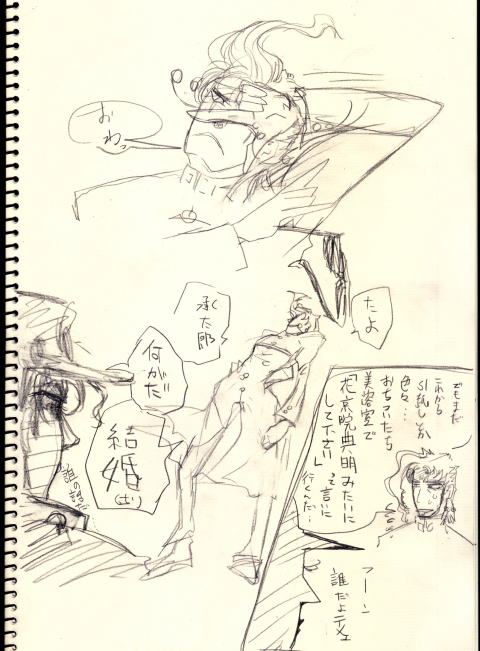 おわっ
たよ
承くん
太郎
何がだ
結婚
誰の話だ
でもまだ
これから
色々…
おちついたら
美容室で
「花京院典明みたいに
して下さい」って言いに
行くんだ…
フーン
誰だよテメェ